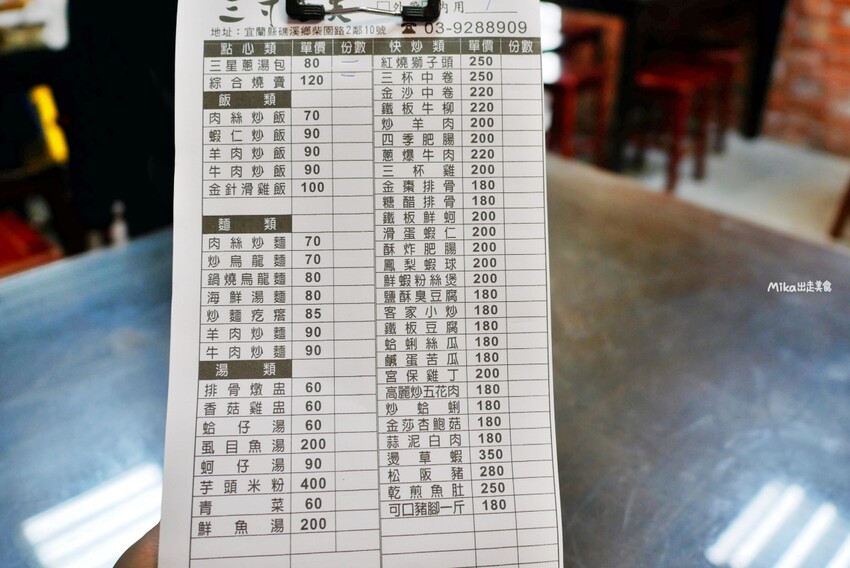 內用
地址：宜蘭縣礁溪鄉柴圍路2鄰10號 ☎ 03-9288909
點心類 單價 份數
三星蔥湯包 80 二
綜合燒賣 120 二
飯類
肉絲炒飯 70
蝦仁炒飯 90
羊肉炒飯 90
牛肉炒飯 90
金針滑雞飯 100
麵類
肉絲炒麵 70
炒烏龍麵 70
鍋燒烏龍麵 80
海鮮湯麵 80
炒麵疙瘩 85
羊肉炒麵 90
牛肉炒麵 90
湯類
排骨燉盅 60
香菇雞盅 60
蛤仔湯 60
虱目魚湯 200
蚵仔湯 90
芋頭米粉 400
青菜 60
鮮魚湯 200
快炒類 單價 份數
紅燒獅子頭 250
三杯中卷 250
金沙中卷 220
鐵板牛柳 220
炒羊肉 200
四季肥腸 200
蔥爆牛肉 220
三杯雞 200
金棗排骨 180
糖醋排骨 180
鐵板鮮蚵 200
滑蛋蝦仁 200
酥炸肥腸 200
鳳梨蝦球 200
鮮蝦粉絲煲 200
鹽酥臭豆腐 180
客家小炒 180
鐵板豆腐 180
蛤蜊絲瓜 180
鹹蛋苦瓜 180
宮保雞丁 200
高麗炒五花肉 180
炒蛤蜊 180
金莎杏鮑菇 180
蒜泥白肉 180
燙草蝦 350
松阪豬 280
乾煎魚肚 250
可口豬腳一斤 180
Mika出走美食